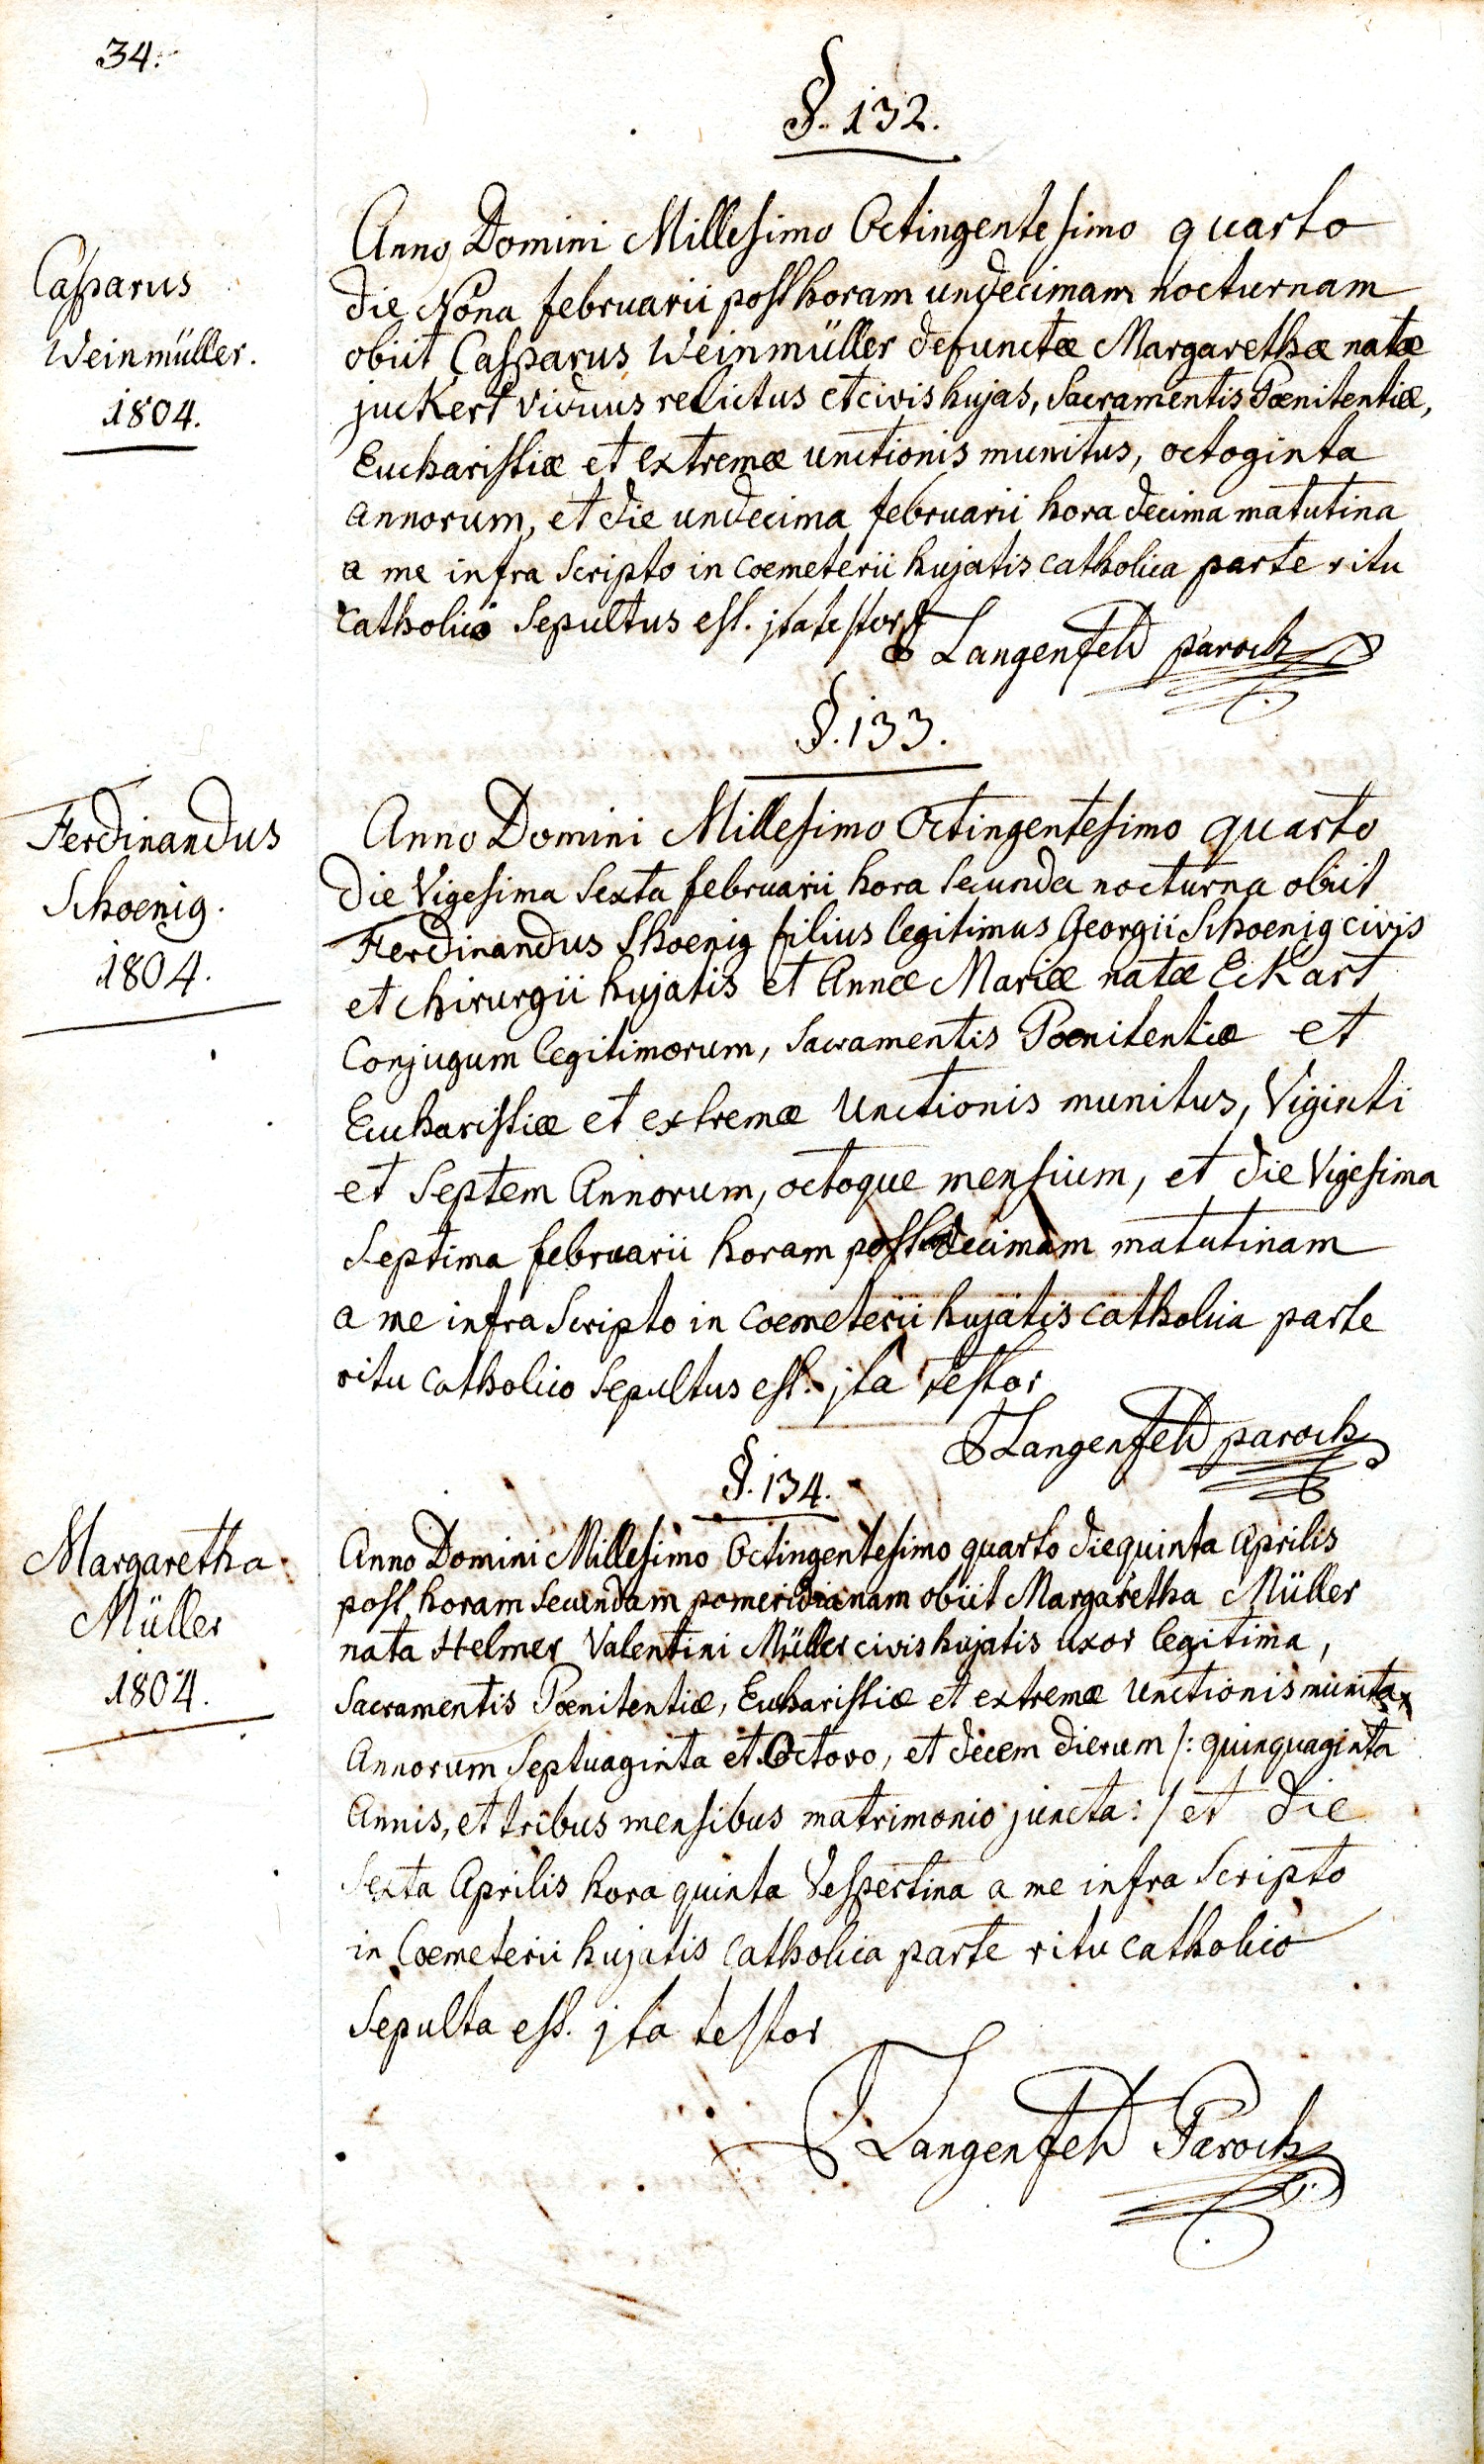 34.
§. 132.
Casparus
Weinmüller.
1804.
Anno Domini Millesimo Octingentesimo quarto
die Nona februarii post horam undecimam nocturnam
obiit Casparus Weinmüller defunctæ Margarethæ natæ
juckert viduus relictus et civis hujas, Sacramentis Pœnitentiæ,
Eucharistiæ et extremæ unctionis munitus, octoginta
annorum, et die undecima februarii hora decima matutina
a me infra scripto in coemeterii hujatis catholica parte ritu
catholico Sepultus est. jta testor
Langenfeld paroch
§. 133.
Ferdinandus
Schoenig.
1804.
Anno Domini Millesimo Octingentesimo quarto
die Vigesima Sexta februarii hora secunda nocturna obiit
Ferdinandus Shoenig filius legitimus Georgii Schoenig civis
et chirurgii hujatis et Annæ Mariæ natæ Eckart
Conjugum legitimorum, Sacramentis Poenitentiæ et
Eucharistiæ et extremæ Unctionis munitus, Viginti
et Septem Annorum, octoque mensium, et die Vigesima
Septima februarii horam post decimam matutinam
a me infra Scripto in Coemeterii hujatis catholica parte
ritu catholico Sepultus est. jta testor
Langenfeld paroch
§. 134.
Margaretha
Müller
1804.
Anno Domini Millesimo Octingentesimo quarto die quinta Aprilis
post horam secundam pomeridianam obiit Margaretha Müller
nata Helmer Valentini Müller civis hujatis uxor legitima,
Sacramentis Pœnitentiæ, Eucharistiæ et extremæ Unctionis munita
Annorum Septuaginta et Octovo, et decem dierum /: quinquaginta
Annis, et tribus mensibus matrimonio juncta: / et die
Sexta Aprilis hora quinta Vespertina a me infra Scripto
in Coemeterii hujatis Catholica parte ritu catholico
Sepulta est. jta testor
Langenfeld Paroch